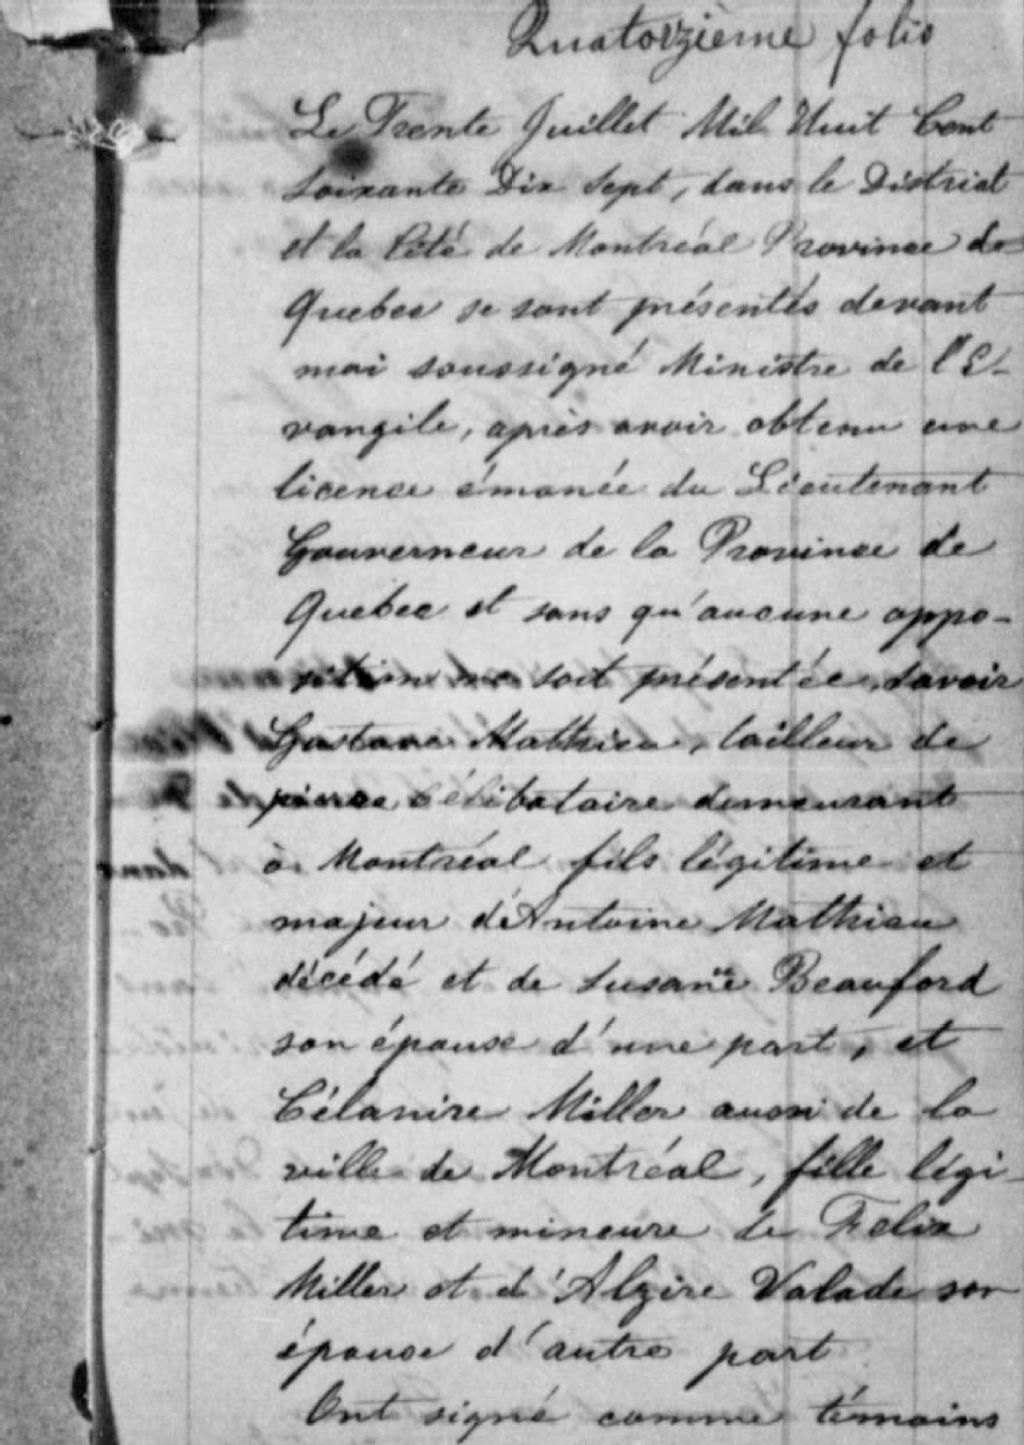 Quatorzième folio
Le Trente Juillet Mil Huit Cent
soixante Dix Sept, dans le District
et la Cité de Montréal Province de
Quebec se sont présentés devant
moi soussigné Ministre de l'E-
vangile, après avoir obtenu une
licence émanée du Lieutenant
Gouverneur de la Province de
Quebec et sans qu'aucune oppo-
sition ne soit présentée, savoir
Gustave Mathieu, tailleur de
pierre célibataire demeurant
à Montréal fils légitime et
majeur d'Antoine Mathieu
décédé et de Susane Beauford
son épouse d'une part, et
Célanire Miller aussi de la
ville de Montréal, fille légi-
time et mineure de Felix
Miller et d'Alzire Valade son
épouse d'autre part
Ont signé comme témoins